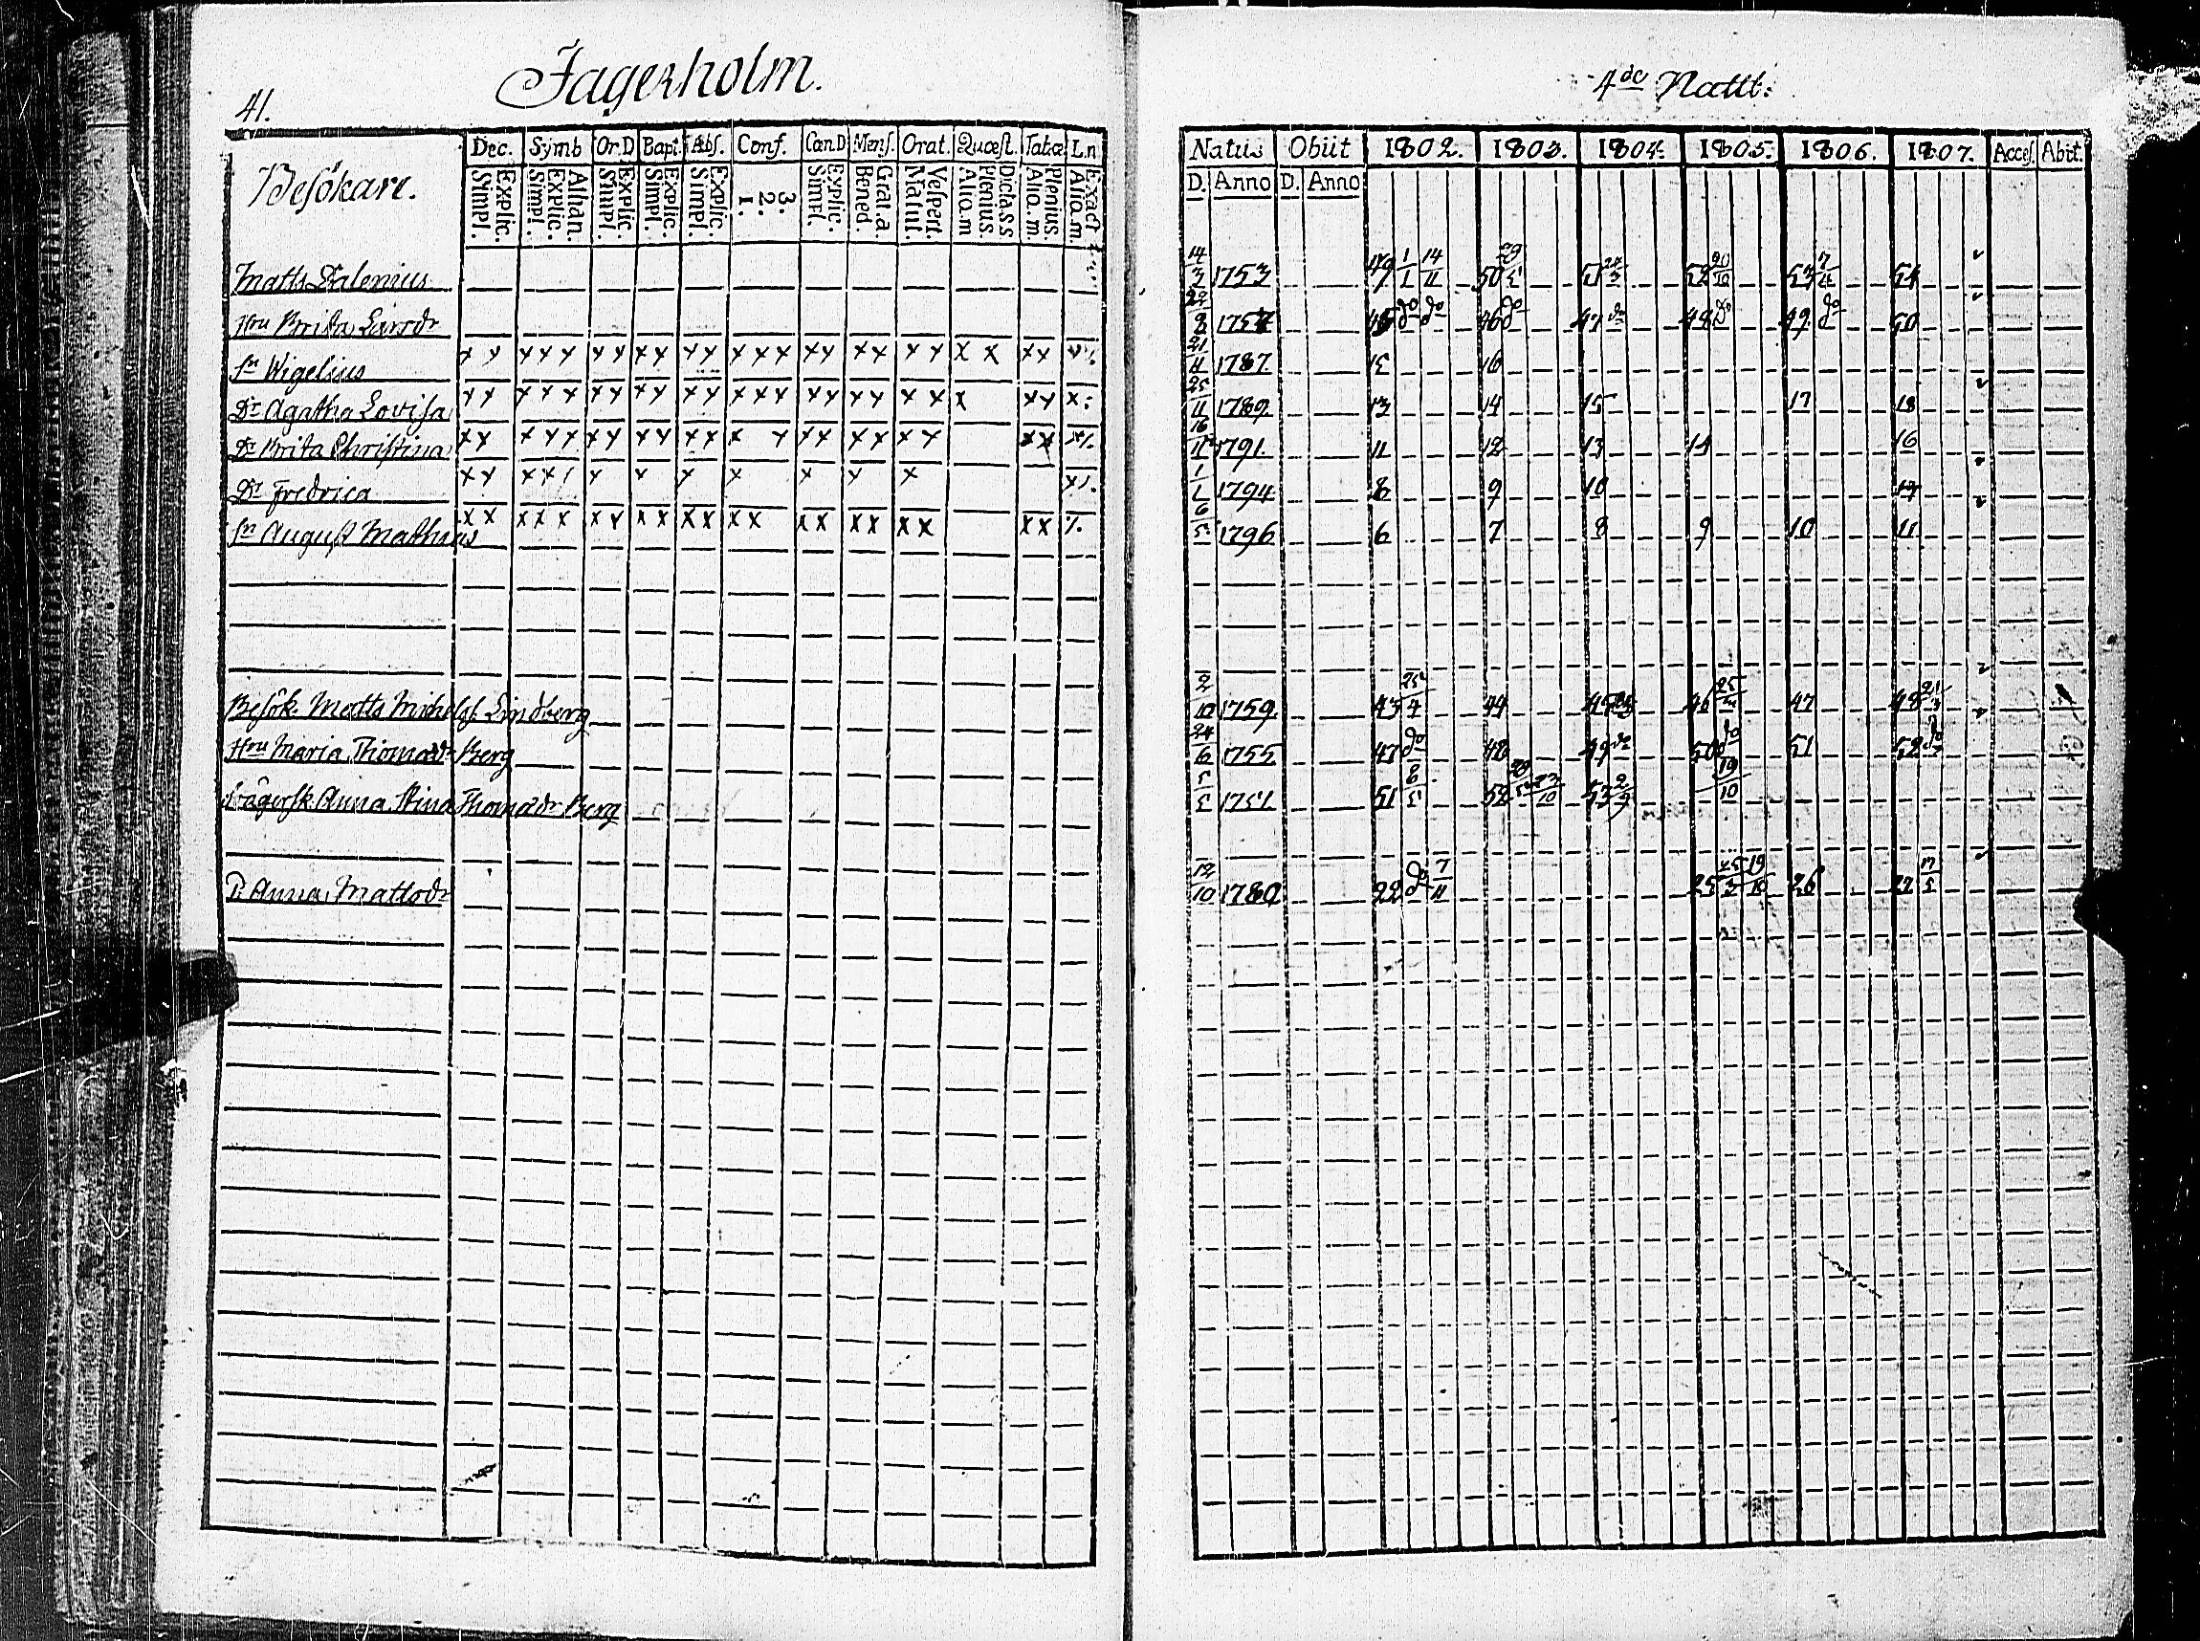 41.
Jagerholm.
4de Natt:
Dec. Symb Or.D Bapt. Abs. Conf. Cœn.D Mens. Orat. Quæst. Tabæ L.n
Besökare.
Explic. Simpl. Athan. Explic. Simpl. Explic. Simpl. Explic. Simpl. Explic. Simpl. 3. 2. 1. Explic. Simpl. Grat.a. Bened. Vespert. Matut. Dicta.s.s. Plenius. Aliq.m Plenius. Aliq.m. Exact Aliq.m.
Natus Obiit 1802. 1803. 1804. 1805. 1806. 1807. Acces. Abit.
D. Anno D. Anno
Matts Dalenius 14/3 1753 49 1/1 14/11 50 51 52 20/10 53 54
Hru Brita Larsdr 22/8 1757 45 do do 46 do 47 do 48 do 49 do 50
Sn Wigelius x x x x x x x x x x x x x x x x x x x x x x x x x 21/11 1787. 15 16
Dr Agatha Lovisa x x x x x x x x x x x x x x x x x x x x x x x x 25/11 1789 13 14 15 17 18
Dr Brita Christina x x x x x x x x x x x x x x x x x x x x x x 16/11 1791. 11 12 13 14 16
Dr Fredrica x x x x / x x x x x x x 1/1 1794 8 9 10 13
Sn August Mathias x x x x x x x x x x x x x x x x x x x x x 6/5 1796 6 7 8 9 10 11
Besök. Matts Michelss. Lindberg 2/10 1759 43 25/4 44 45 46 25/3 47 48 21/3
Hru Maria Thomædr Berg 24/6 1755 47 do 48 49 do 50 do 51 52 do
Svägersk. Anna Stina Thomædr Berg 5/5 1751 51 8/5 52 23/10 53 2/9 19/10
P. Anna Mattsdr 12/10 1780 22 do 7/11 25 19/10 26 27 17/5